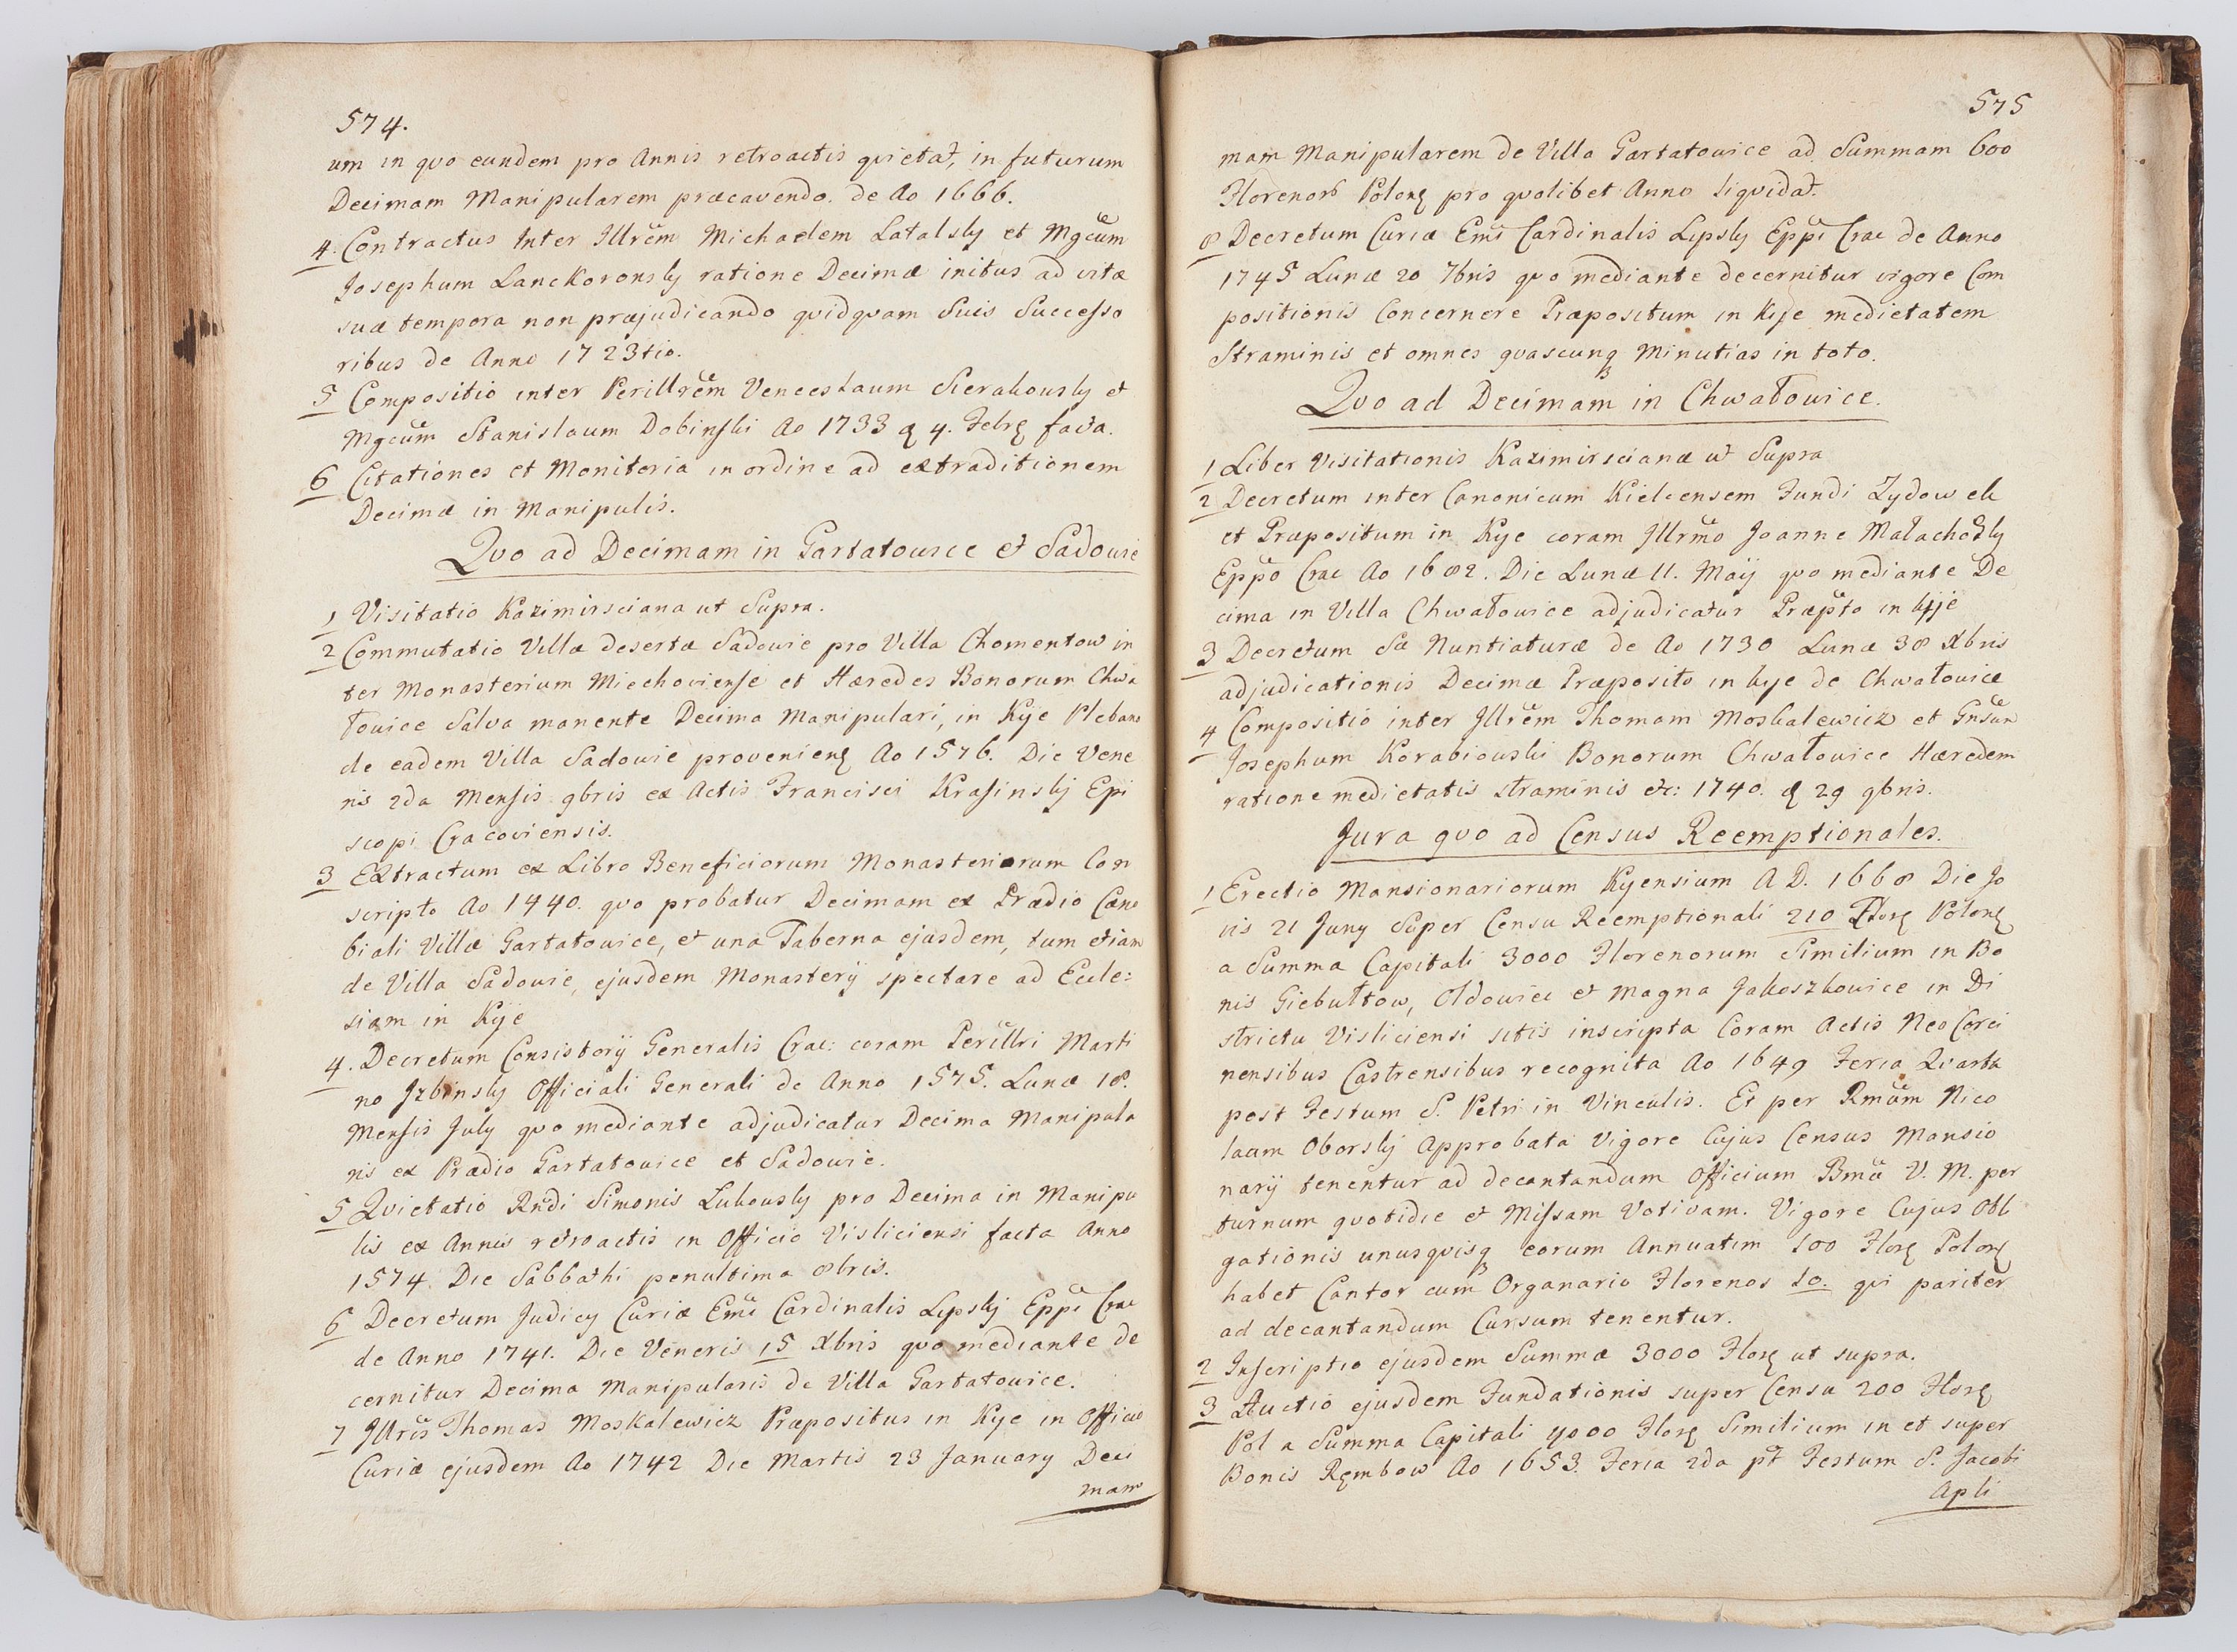 574.
um in quo eundem pro Annis retroactis quietat, in futurum
Decimam Manipularem præcavendo. de Ao 1666.
4. Contractus Inter Illrem Michaelem Latalsky et Mgcum
Josephum Lanckoronsky ratione Decimæ initus ad vitæ
suæ tempora non præjudicando quidquam Suis Successo
ribus de Anno 1723tio.
5 Compositio inter Perillrem Venceslaum Sierakowsky et
Mgcum Stanislaum Dobinski Ao 1733 4. Febr facta.
6 Citationes et Monitoria in ordine ad extraditionem
Decimæ in Manipulis.
Quo ad Decimam in Gartatowice et Sadowie
1 Visitatio Kazimirsciana ut Supra.
2 Commutatio Villæ desertæ Sadowie pro Villa Chomentow in
ter Monasterium Miechoviense et Hæredes Bonorum Chwa
łowice Salva manente Decima Manipulari, in Kije Plebano
de eadem Villa Sadowie provenien Ao 1576. Die Vene
ris 2da Mensis 9bris ex Actis Francisci Krasinskij Epi
scopi Cracoviensis.
3 Extractum ex Libro Beneficiorum Monasteriorum Con
scripto Ao 1440. quo probatur Decimam ex Prædio Cæno
biali Villæ Gartatowice, et una Taberna ejusdem, tum etiam
de Villa Sadowie, ejusdem Monasterij spectare ad Eccle:
siam in Kije
4. Decretum Consistorij Generalis Crac: coram Perillri Marti
no Izbinsky Officiali Generali de Anno 1575. Lunæ 18.
Mensis July quo mediante adjudicatur Decima Manipula
ris ex Prædio Gartatowice et Sadowie.
5 Quietatio Rndi Simonis Lukowsky pro Decima in Manipu
lis ex Annis retroactis in Officio Visliciensi facta Anno
1574. Die Sabbathi penultima 8bris.
6 Decretum Judicy Curiæ Emi Cardinalis Lipskij Eppi Crac
de Anno 1741. Die Veneris 15 Xbris quo mediante de
cernitur Decima Manipularis de Villa Gartatowice.
7 Illris Thomas Moskalewicz Præpositus in Kije in Officio
Curiæ ejusdem Ao 1742 Die Martis 23 January Deci
mam
575
mam Manipularem de Villa Gartatowice ad Summam 600
Florenor Polon pro quolibet Anno liquidat.
8 Decretum Curiæ Emi Cardinalis Lipsky Eppi Crac de Anno
1745 Lunæ 20 7bris quo mediante decernitur vigore Com
positionis Concernere Præpositum in Kije medietatem
Straminis et omnes quascunq Minutias in toto.
Quo ad Decimam in Chwałowice.
1 Liber Visitationis Kazimirscianæ ut Supra
2 Decretum inter Canonicum Kielcensem Fundi Zydow
et Præpositum in Kye coram Illrmo Joanne Małachosky
Eppo Crac Ao 1682. Die Lunæ 11. Maij quo mediante De
cima in Villa Chwałowice adjudicatur Præpto in kije
3 Decretum Sæ Nuntiaturæ de Ao 1730 Lunæ 38 Xbris
adjudicationis Decimæ Præposito in kye de Chwałowice
4 Compositio inter Illrem Thomam Moskalewicz et Gnsum
Josephum Korabiowski Bonorum Chwałowice Hæredem
ratione medietatis straminis etc: 1740. 29 9bris.
Jura quo ad Census Reemptionales.
1 Erectio Mansionariorum Kyensium A D. 1668 Die Jo
vis 21 Juny Super Censu Reemptionali 210 Flor Polon
a Summa Capitali 3000 Florenorum Similium in Bo
nis Giebułtow, Oldowice et Magna Jakoszkowice in Di
strictu Visliciensi sitis inscripta Coram Actis Neo Corci
nensibus Castrensibus recognita Ao 1649 Feria Quarta
post Festum S. Petri in Vinculis. Et per Rmum Nico
laum Oborskij Approbata Vigore Cujus Census Mansio
narij tenentur ad decantandum Officium Bmæ V. M. per
turnum quotidie et Missam Votivam. Vigore Cujus Obli
gationis unusquisq eorum Annuatim 100 Flor Polon
habet Cantor cum Organario Florenos 10. qui pariter
ad decantandum Cursum tenentur.
2 Inscriptio ejusdem Summæ 3000 Flor ut supra.
3 Auctio ejusdem Fundationis super Censu 200 Flor
Pol a Summa Capitali 4000 Flor Similium in et super
Bonis Rembow Ao 1653. Feria 2da pt Festum S. Jacobi
Apli